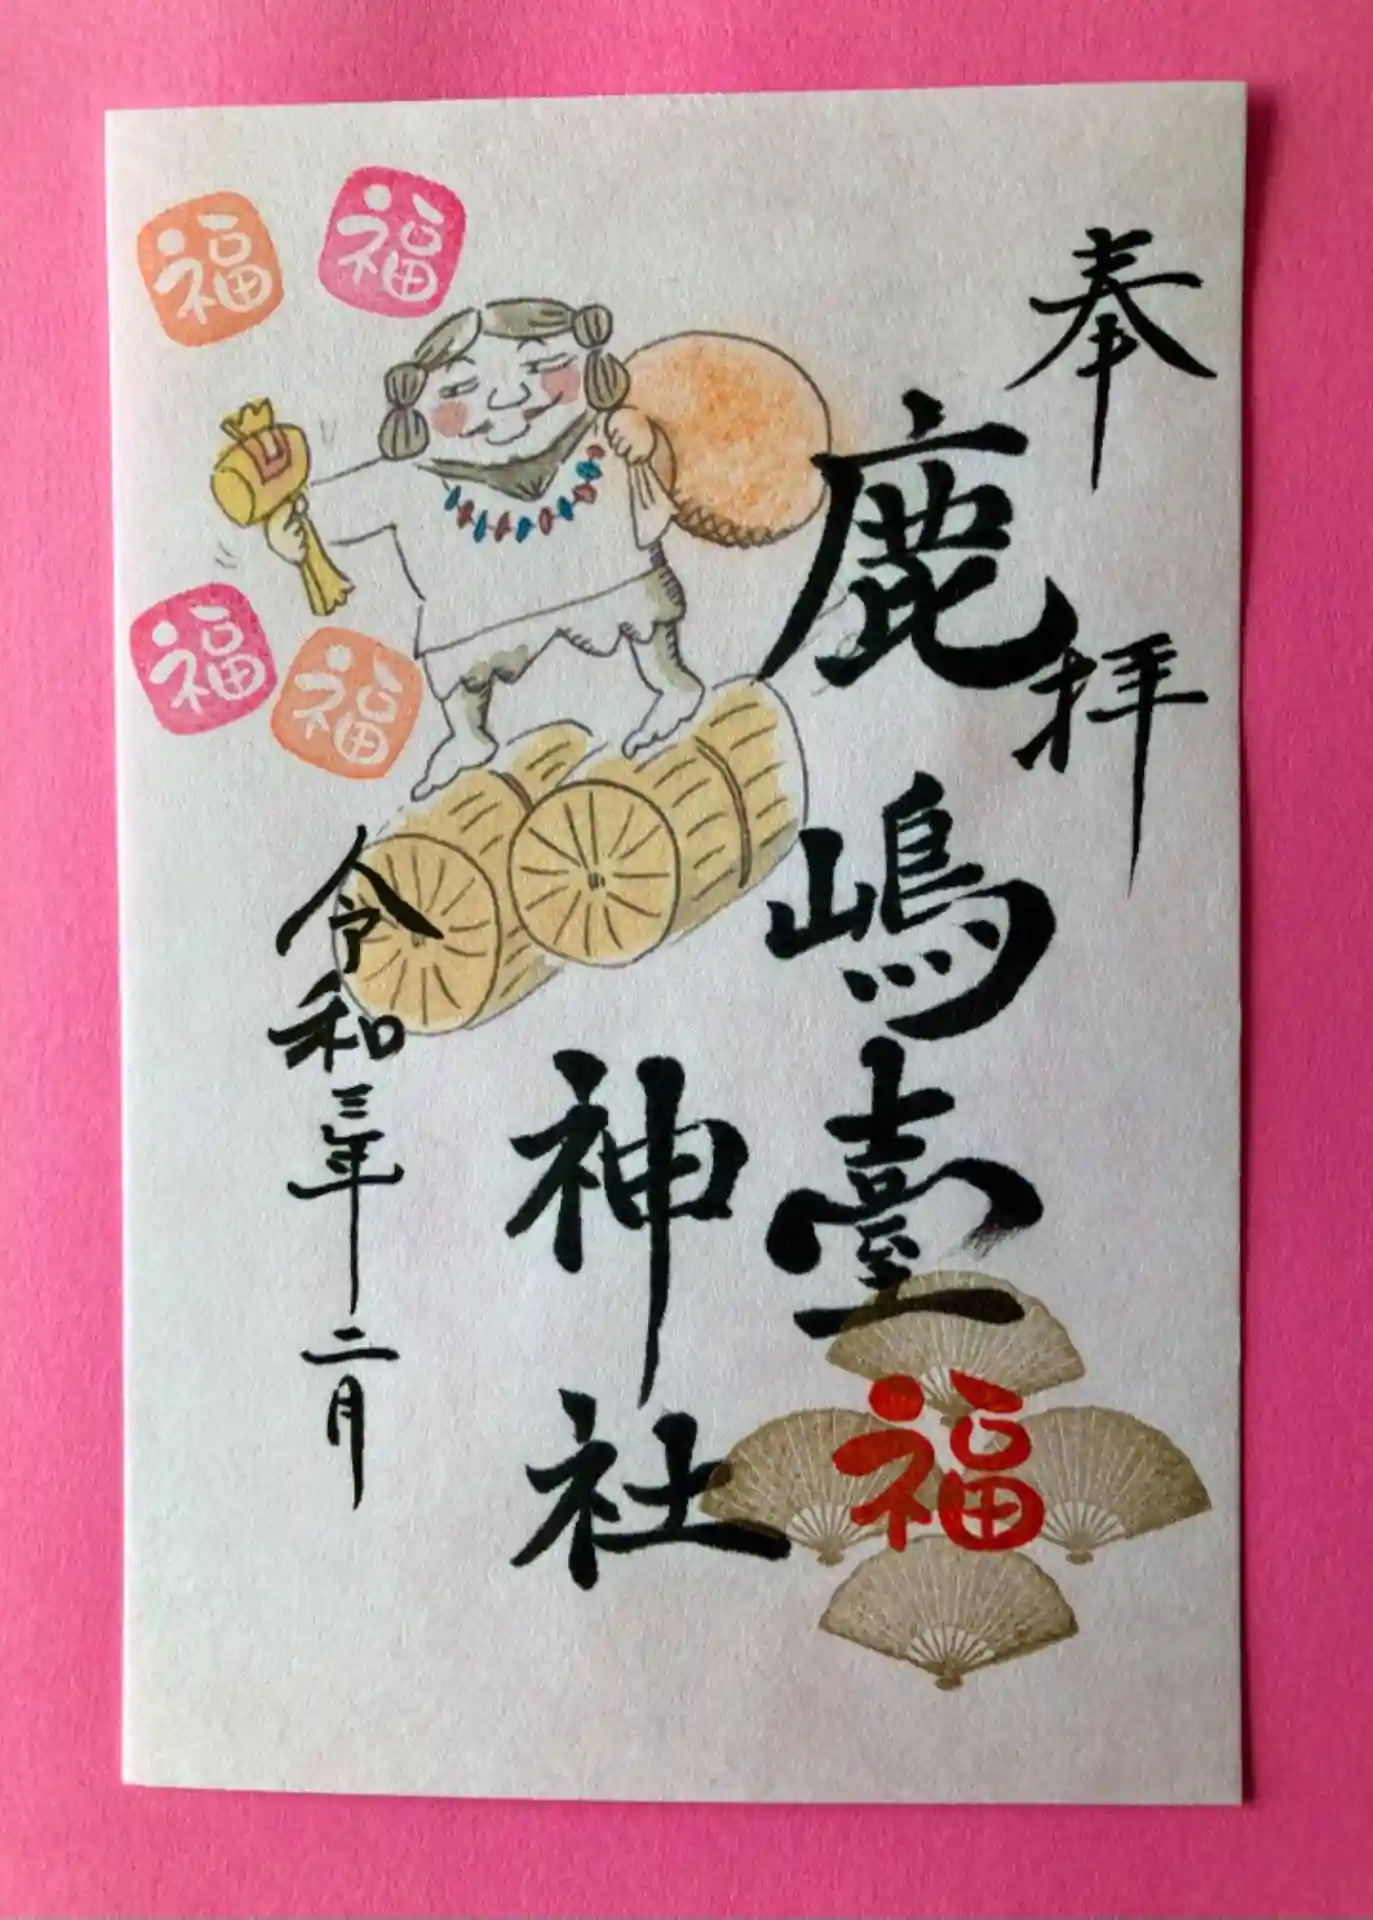 奉拝
鹿嶋臺
神社
令和三年二月
福
福
福
福
福